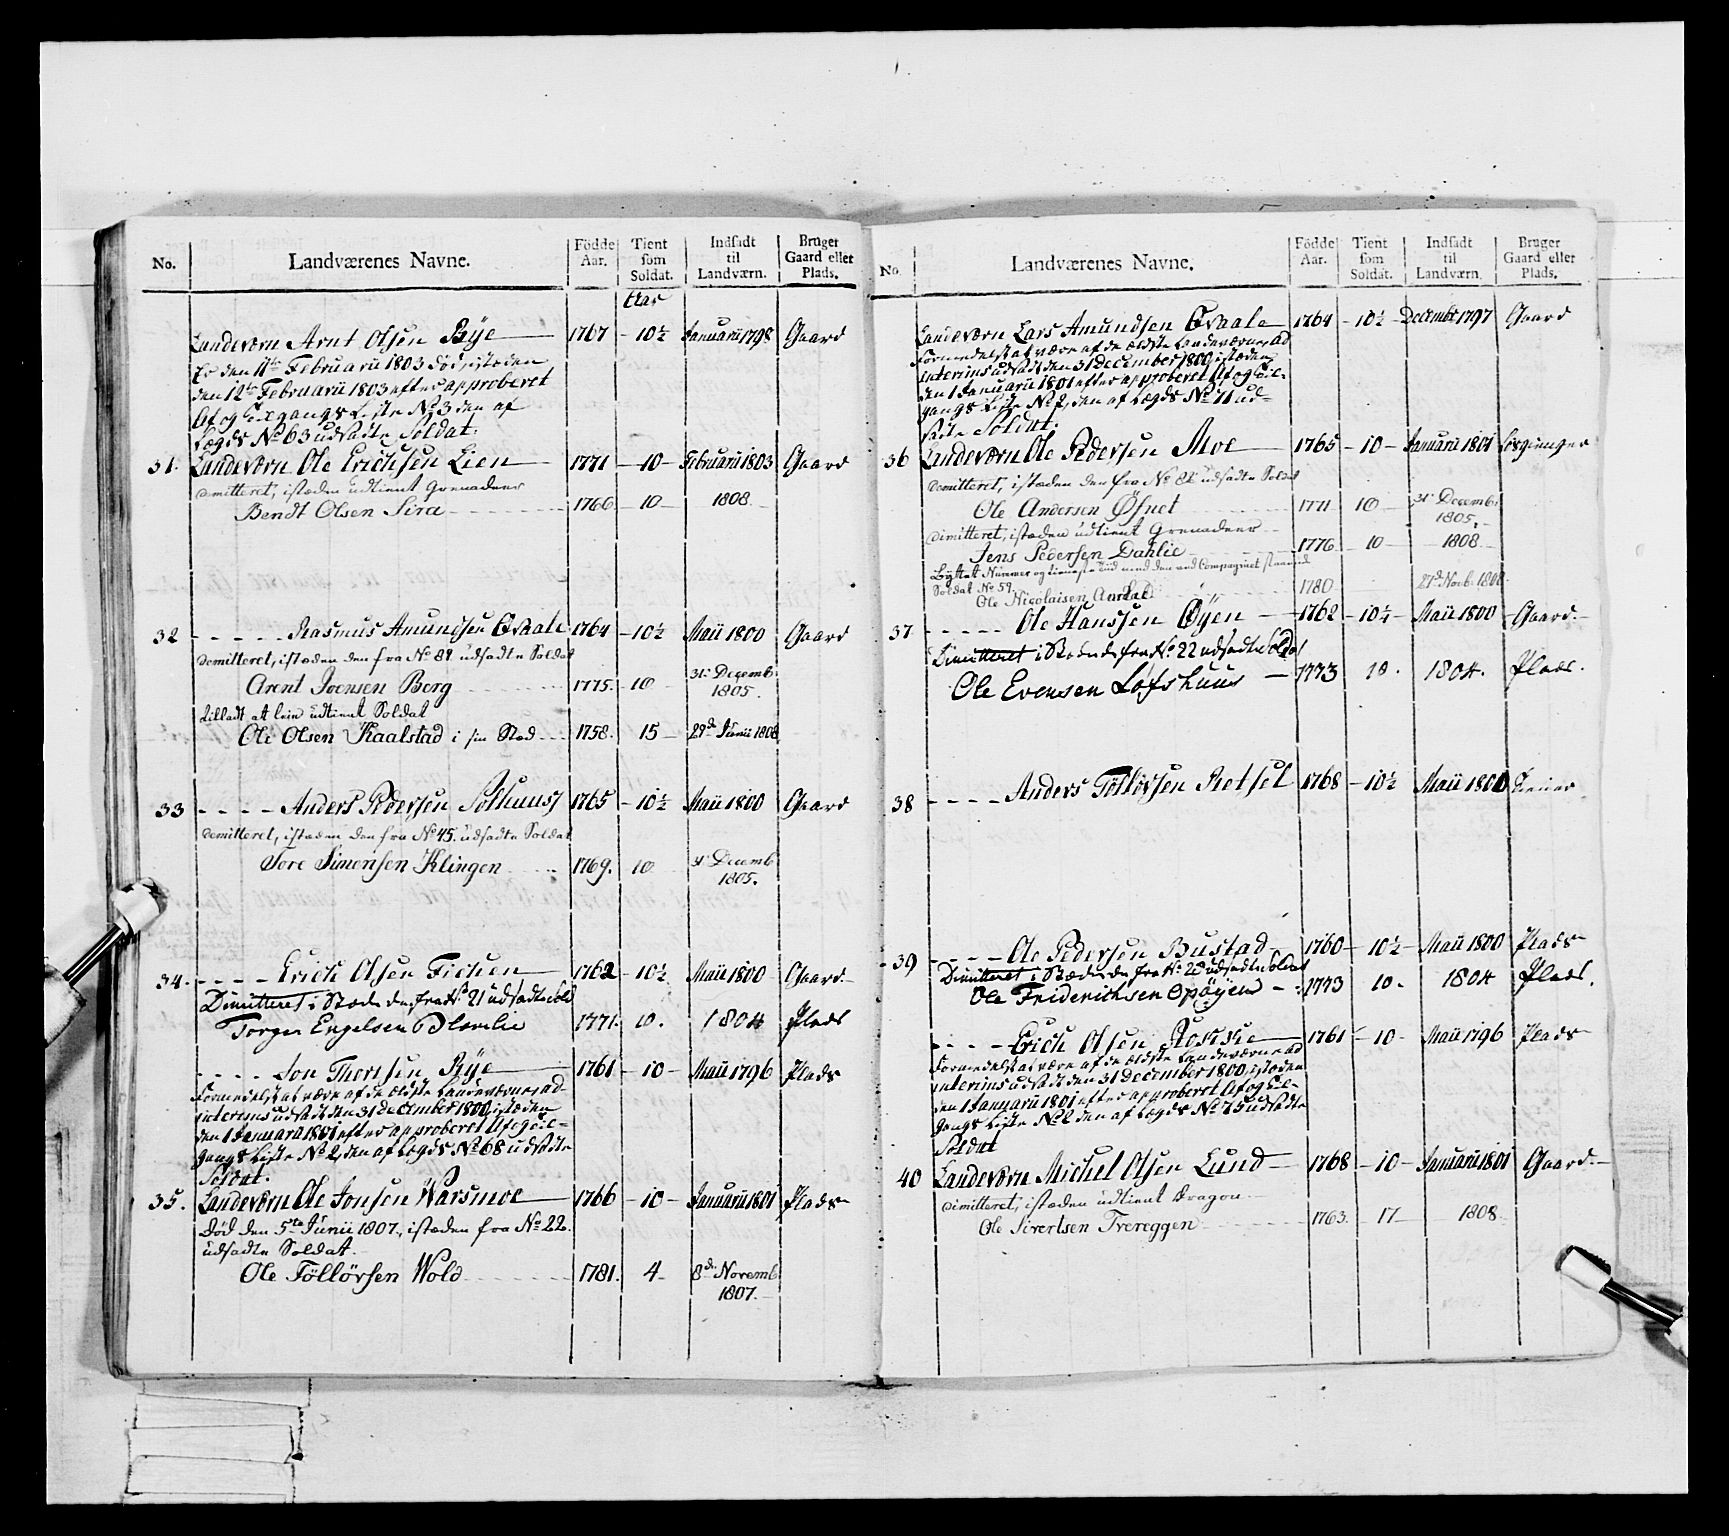 No. Landværenes Navne. Födde Aar. Tient som Soldat. Indsadt til Landværn. Bruger Gaard eller Plads.
Aar
Landeværn Arnt Olsen Rÿe 1767 10½ Januarii 1798 Gaard
Er den 11te Februarii 1803 död, istæden
den 12te Februarii 1803 efter approberet
Af og Tilgangs Liste No 3 den af
Lægds No 63 udsadte Soldat.
31. Landeværn Ole Erichsen Lien 1771 10 Februarii 1803 Gaard
Demitteret, istæden udtient Grenadeer
Bendt Olsen Lira 1766 10 1808
32 Rasmus Amundsen Qvaale 1764 10½ Maii 1800 Gaard
Demitteret, istæden den fra No 89 udsadte Soldat
Arent Joensen Berg 1775. 10 31te Decemb. 1805.
tilladt at leie udtient Soldat
Ole Olsen Kaalstad i sin Sted 1758. 15 29de Junii 1808
33 Anders Pedersen Solhuus 1765 10½ Maii 1800 Gaard
Demitteret, istæden den fra No 45. udsadte Soldat
Tore Simensen Klingen 1769. 10 31te Decemb 1805.
34. Erich Olsen 1762 10½ Maii 1800 Gaard
Dimitteret i Stæde den fra No 21 udsadte Sold
Torger Engelsen 1771. 10. 1804 Plads
Jon Thorsen Rÿe 1761 10 Maii 1796 Plads
Formedelst at være af de ældste Landeværner ad
interims udsadt den 31 december 1800, istæden
den 1 Januarii 1801 efter approberet Af og Til-
gangs Liste No 2, den af Lægds No 68 udsadte
Soldat.
35. Landeværn Ole Jonsen Warsmoe 1766 10 Januarii 1801 Plads
Död den 5te Junii 1807., istæden fra No 22.
udsadte Soldat.
Ole Föllörsen Wold 1781. 4 8de Novemb 1807.
No. Landværenes Navne. Födde Aar. Tient som Soldat. Indsadt til Landværn. Bruger Gaard eller Plads.
Landeværn Lars Amundsen Qvaale 1764 10½ Decembr 1797 Gaard
Formedelst at være af de ældste Landeværner ad
interims udsadt den 31 december 1800, istæden
den 1 Januarii 1801 efter approberet Af og Til-
gangs Liste No 2, den af Lægds No 71 ud-
sadte Soldat.
36 Landeværn Ole Pedersen Moe 1765 10 Januarii 1801 Losgienger
Demitteret, istæden den fra No 82 udsadte Soldat
Ole Andersen Öfnet 1771 10 31te Decemb. 1805.
Dimitteret, istæden udtient Grenadeer
Jens Pedersen Dahlie 1776 10 1808
Byttet Nummer og tieneste tiid med den ved Compagniet staaende
Soldat No 59.
Ole Nicolaisen 1780 27de Novb. 1808
37 Ole Hanssen Öÿen 1762 10½ Maii 1800 Gaard.
Dimitteret i Stæden de fra No 22 udsadte Soldat
Ole Evensen Lofshuus 1773 10. 1804. Plads.
38 Anders Föllörsen Retsel 1768 10½ Maii 1800
39 Ole Pedersen Bustad 1760 10½ Maii 1800 Plads
Dimitteret i Stæden den fra No 20 udsadte Soldat
Ole Friderichsen Opöÿen 1773 10. 1804 Plads.
Erich Olsen 1761 10 Maii 1796 Plads
Formedelst at være af de ældste Landeværner ad
interims udsadt den 31 december 1800, istæden
den 1 Januarii 1801 efter approberet Af og Til-
gangs Liste No 2 den af Lægds No 75 udsadte
Soldat
40 Landeværn Michel Olsen Lund 1768 10 Januarii 1801 Gaard.
Dimitteret, istæden udtient Dragon
Ole Sivertsen Trereggen 1763. 17 1808